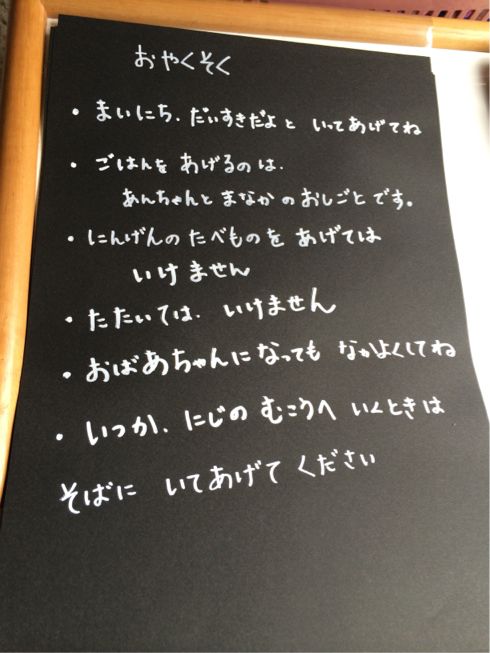 おやくそく
・まいにち、だいすきだよと いってあげてね
・ごはんを あげるのは、
あんちゃんと まなかの おしごとです。
・にんげんの たべものを あげては
いけません
・たたいては、いけません
・おばあちゃんになっても なかよくしてね
・いつか、にじの むこうへ いくときは
そばに いてあげて ください